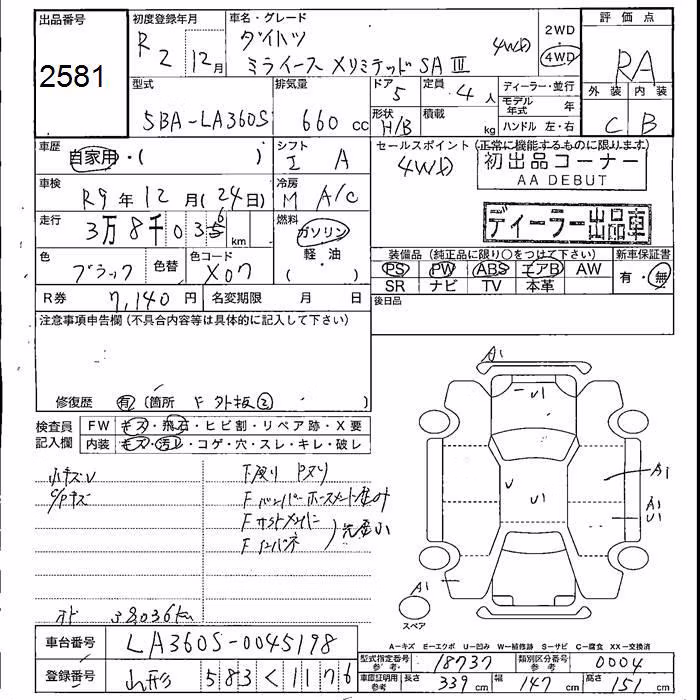 出品番号
2581
初度登録年月
R 2 12月
車名・グレード
ダイハツ
ミライース XリミテッドSAⅢ 4WD
2WD
・
4WD
評価点
RA
外装 内装
C B
型式
5BA-LA360S
排気量
660 cc
ドア 5
定員 4人
形状 H/B
積載 kg
ディーラー・並行
モデル年式 年
ハンドル 左・右
車歴
自家用・( )
シフト
I A
セールスポイント (正常に機能するものに限ります)
4WD
初出品コーナー
AA DEBUT
ディーラー出品車
車検
R9年 12月(24日)
冷房
M A/C
走行
3万8千036km
燃料
ガソリン
軽・油
( )
色
ブラック
色替
色コード
X07
装備品 (純正品に限り○をつけて下さい)
PS PW ABS エアB AW
SR ナビ TV 本革
新車保証書
有・無
R券 7,140円
名変期限 月 日
後日品
注意事項申告欄 (不具合内容等は具体的に記入して下さい)
修復歴 有 (箇所 F 外板② )
検査員記入欄
FW キズ・飛石・ヒビ割・リペア跡・X要
内装 キズ・汚レ・コゲ・穴・スレ・キレ・破レ
小キズU
下廻り Pヌリ
F
F
F
オド 38,036km
A1
U1
U U1
A1
A1
U1
A1
スペア
A-キズ E-エクボ U-凹み W-補修跡 S-サビ C-腐食 XX-交換済
車台番号 LA360S-0045198
登録番号 山形 583 く 1176
型式指定番号 参考 18737
類別区分番号 参考 0004
車庫証明用 参考 長さ 339cm 幅 147cm 高さ 151cm